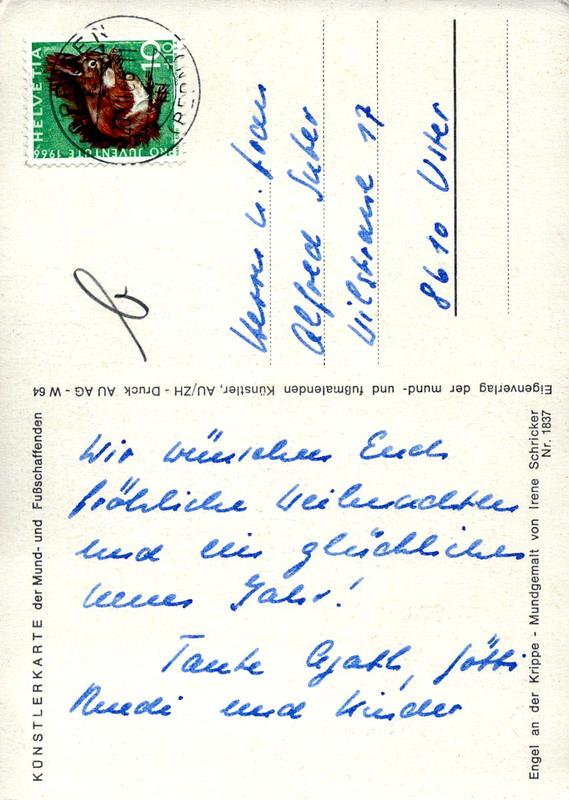 HELVETIA
10+10
PRO JUVENTUTE 1966
Herrn u. Frau
Alfred Suter
Wilstrasse 17
8610 Uster
Eigenverlag der mund- und fußmalenden Künstler, AU/ZH - Druck AU AG - W 64
KÜNSTLERKARTE der Mund- und Fußschaffenden
Wir wünschen Euch
fröhliche Weihnachten
und ein glückliches
neues Jahr!
Tante Agath, Götti
Ruedi und Kinder
Engel an der Krippe - Mundgemalt von Irene Schricker
Nr. 1837